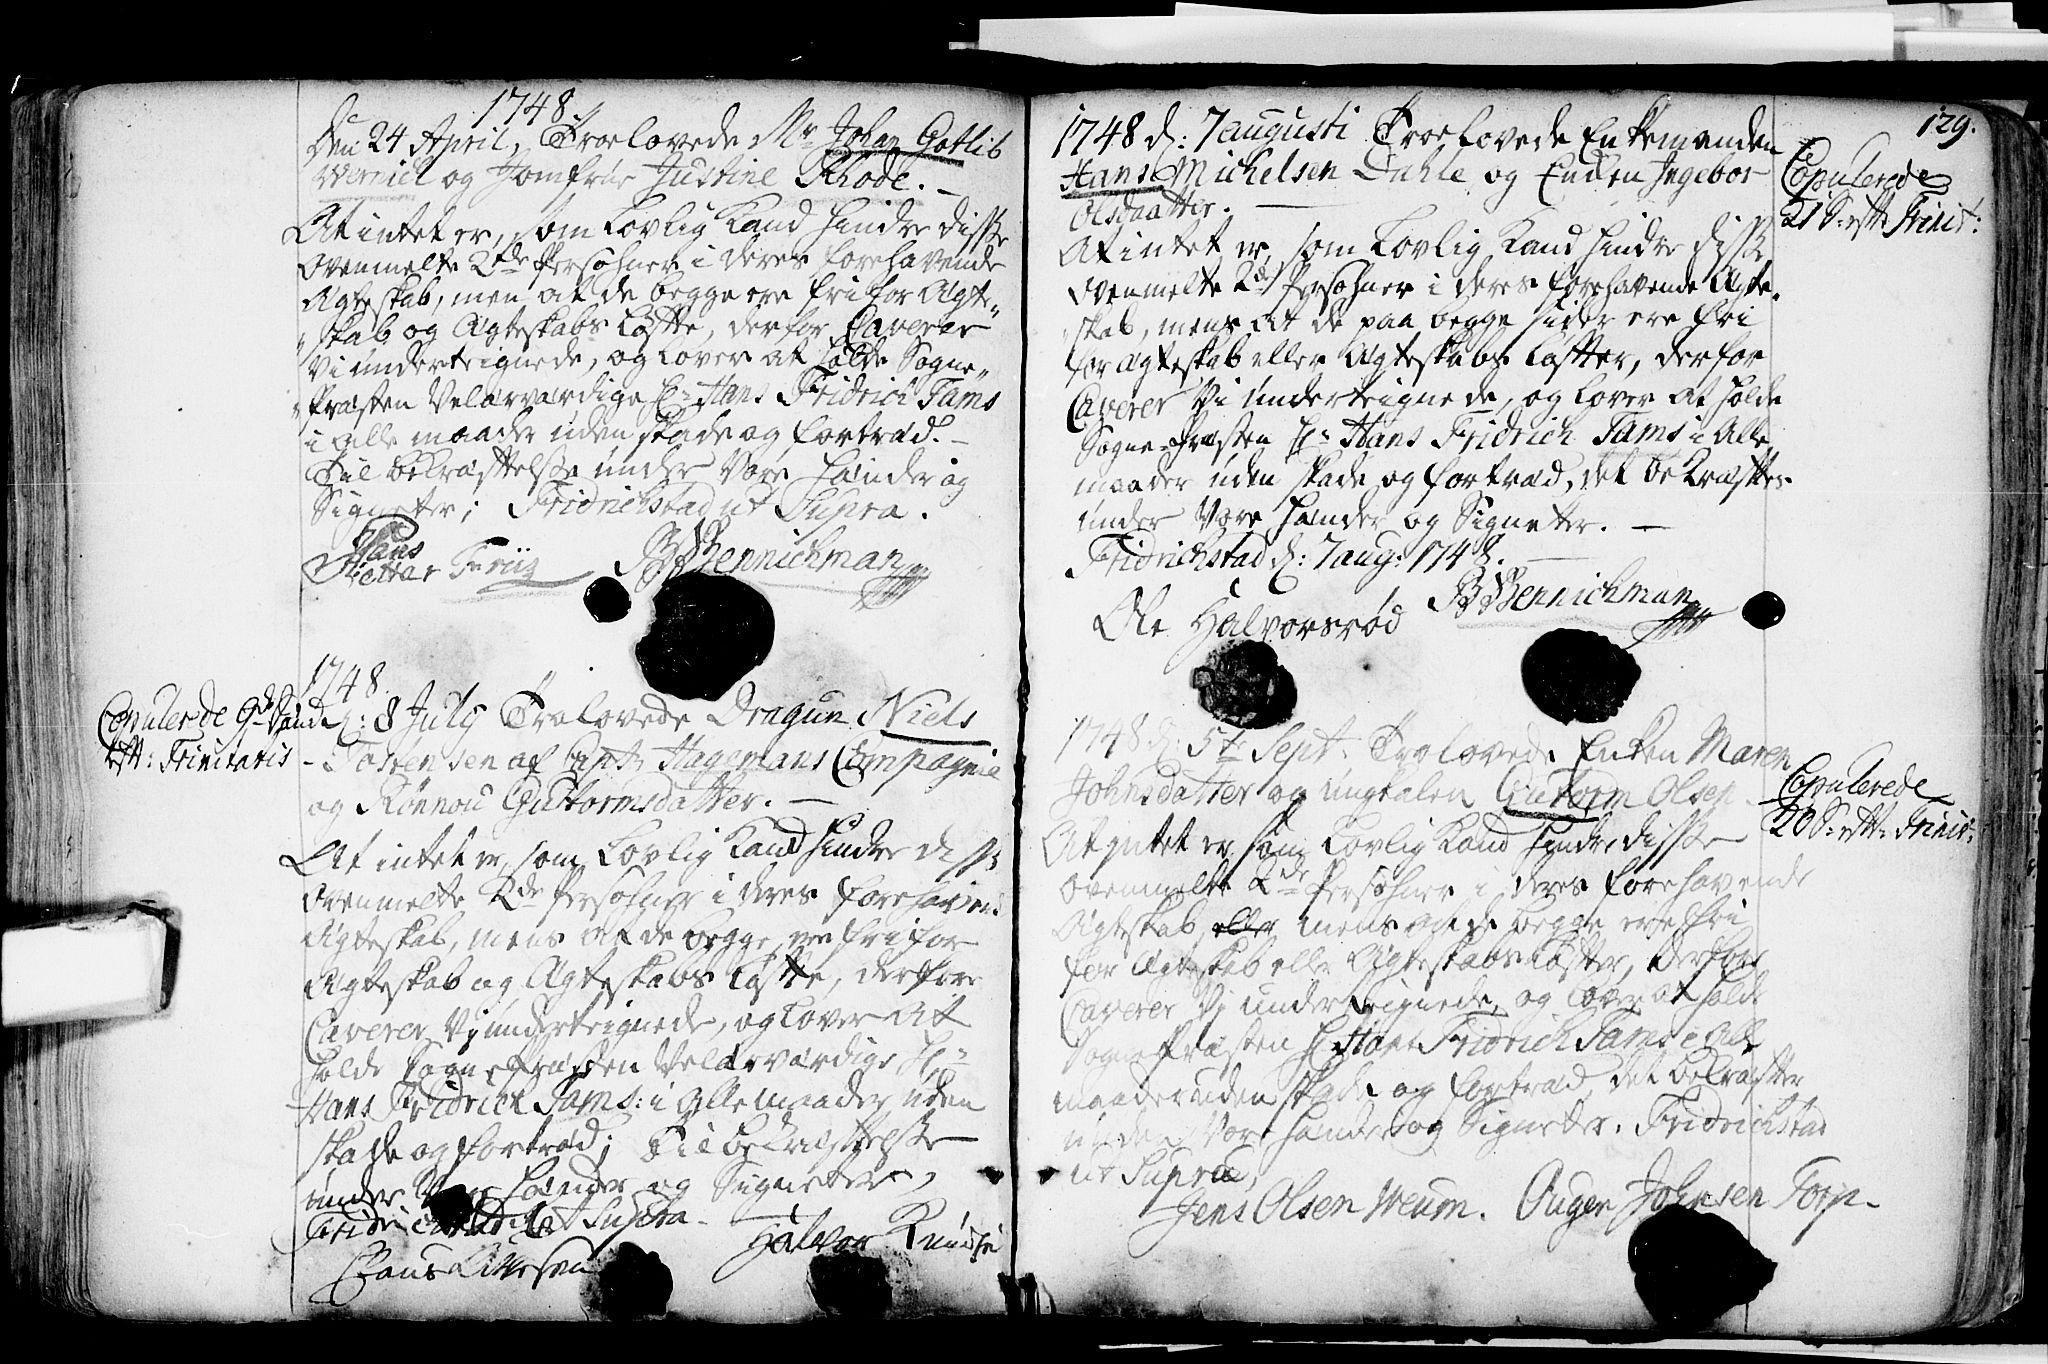 1748
Den 24 April, Troelovede Mr Johan Gotlib
Wernich og Jomfrue Justine Rhode. –
At intet er, som Lovlig Kand hindre disse
ovenmelte 2de Persohner i deres forehavende
Ægteskab, men at de begge ere fri for Ægte„
„skab og Ægteskabs Løffte, derfor Caverer
Vi underteignede, og lover at holde Sogne„
„Præsten Velærværdige Hr Hans Fridrich Tams
i alle maader uden skade og fortræd. –
Til bekræfftelsse under Vore hænder og
Signeter; Fridrichstad ut Supra.
Hans
Pettar Friiz BBennichman
1748.
d: 8 July Trolovede Dragun Niels
Copulerede 9de Sønd.
efft: Trinitatis
Tostensen af Capt. Hagemans Compagnie
og Rönnou Guttormsdatter. –
At intet er, som Lovlig Kand hindre disse
ovenmelte 2de Persohner i deres forehavend
Ægteskab, mens at de begge ere fri for
Ægteskab og Ægteskabs Løfte, derfore
Caverer Vi underteignede, og Lover At
holde Sognepræsten Velærværdige Hr
Hans Fridrich Tams: i Alle maader uden
skade og fortræd; Til bekræfftelsse
under Vore hænder og Signeter,
Fridrichstad ut Supra. –
Halvor Knudsen
Claus
129.
1748 d: 7 augusti Troelovede Enkemanden
Hans Michelsen Dahle og Enken Ingebor
Olsdaatter.
Copulerede
21 S: efft: Trinit:
At intet er, som Lovlig Kand hindre disse
ovenmelte 2de Persohner i deres forehavende Ægte„
skab, mens at de paa begge sider ere fri
for Ægteskab eller Ægteskabs Løffter, derfor
Caverer Vi underteignede, og lover at holde
Sogne-Præsten Hr Hans Fridrich Tams i Alle
maader uden skade og fortræd, det bekræfftes
under Vore hænder og Signetter. –
Fridrichstad d: 7 aug: 1748. –
Ole Halvorsrød BBennichman
1748 d: 5te Sept. Trolovede Enken Maren
Johnsdatter og ungkalen Guttorm Olsen
Copulerede
20 S: efft: Trinit:
At intet er, som Lovlig Kand hindre disse
ovenmelte 2de Persohner i deres forehavende
Ægteskab eller mens at de begge ere fri
for Ægteskab eller Ægteskabs Løffter, derfore
Caverer Vi underteignede, og lover at holde
Sognepræsten Hr Hans Fridrich Tams i Alle
maader uden skade og fortræd, det bekræfter
under Vore hænder og Signeter. Fridrichstad
ut Supra,
Jens Olsen Weum. Auger Johnsen Torp.